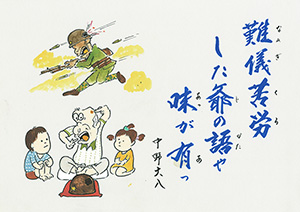 難儀苦労
した爺の語や
味が有っ
中野大八